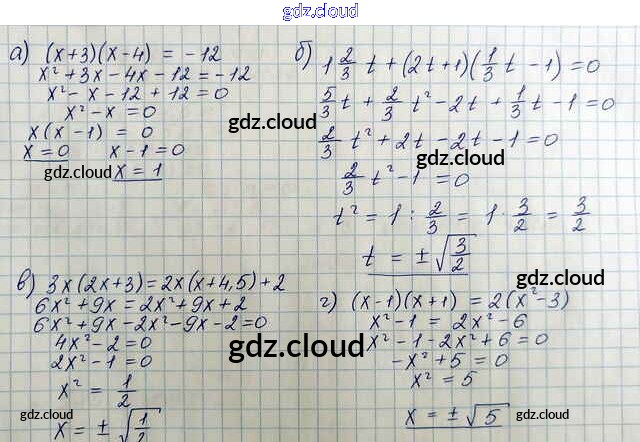 gdz.cloud
а) (x+3)(x-4) = -12
x² + 3x - 4x - 12 = -12
x² - x - 12 + 12 = 0
x² - x = 0
x(x-1) = 0
x = 0 x - 1 = 0
x = 1
gdz.cloud
gdz.cloud
б) 1 2/3 t + (2t+1)(1/3 t - 1) = 0
5/3 t + 2/3 t² - 2t + 1/3 t - 1 = 0
2/3 t² + 2t - 2t - 1 = 0
2/3 t² - 1 = 0
t² = 1 : 2/3 = 1 · 3/2 = 3/2
t = ± √3/2
gdz.cloud
gdz.cloud
в) 3x(2x+3) = 2x(x+4,5) + 2
6x² + 9x = 2x² + 9x + 2
6x² + 9x - 2x² - 9x - 2 = 0
4x² - 2 = 0
2x² - 1 = 0
x² = 1/2
x = ± √1/2
gdz.cloud
gdz.cloud
г) (x-1)(x+1) = 2(x²-3)
x² - 1 = 2x² - 6
x² - 1 - 2x² + 6 = 0
-x² + 5 = 0
x² = 5
x = ± √5
gdz.cloud
gdz.cloud
gdz.cloud